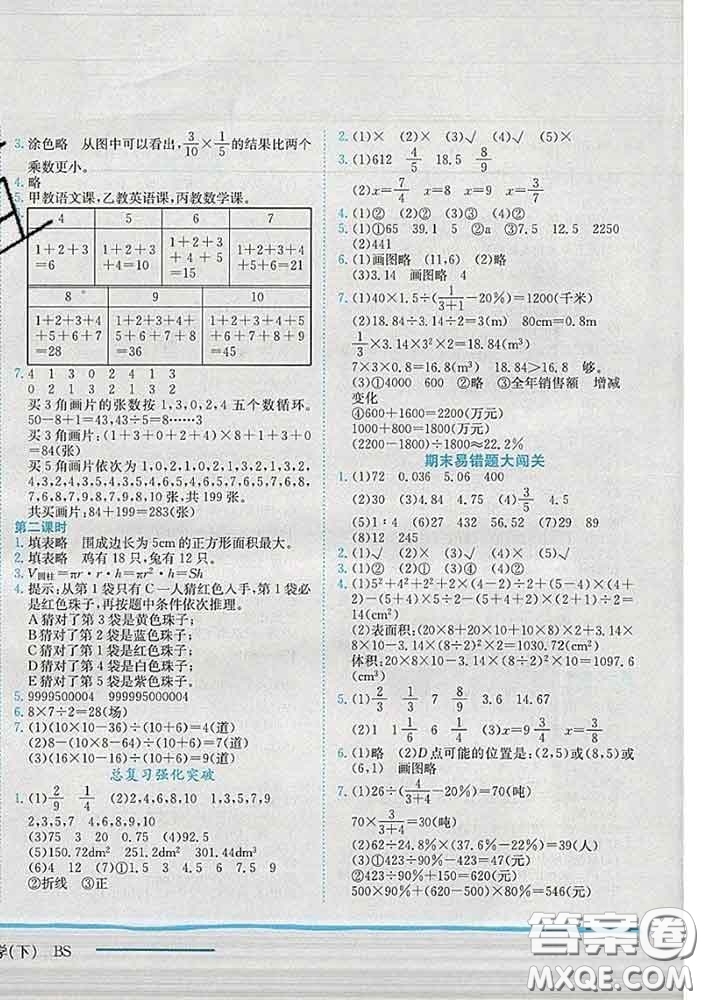 3. 涂色略 从图中可以看出，3/10×1/5的结果比两个
乘数更小。
4. 略
5. 甲教语文课，乙教英语课，丙教数学课。
4 5 6 7
1+2+3=6 1+2+3+4=10 1+2+3+4+5=15 1+2+3+4+5+6=21
8 9 10
1+2+3+4+5+6+7=28 1+2+3+4+5+6+7+8=36 1+2+3+4+5+6+7+8+9=45
7. 4 1 3 0 2 4 1 3
0 2 1 3 2 1 3 2
买3角画片的张数按1,3,0,2,4五个数循环。
50-8+1=43,43÷5=8……3
买3角画片：(1+3+0+2+4)×8+1+3+0
=84(张)
买5角画片依次为1,0,2,1,0,2,1,3,2,1,3,2,
4,3,2,4,3,5,4,3,5,4,6,5,4,6,5,7,6,5,7,6,
8,7,6,8,7,9,8,7,9,8,10(张),共199张。
共买画片：84+199=283(张)
第二课时
1. 填表略 围成边长为5cm的正方形面积最大。
2. 填表略 鸡有18只，兔有12只。
3. V圆柱=πr·r·h=πr²·h=Sh
4. 提示：从第1袋只有C一人猜红色入手，第1袋必
是红色珠子，再按题中条件依次推理。
A猜对了第3袋是黄色珠子；
B猜对了第2袋是蓝色珠子；
C猜对了第1袋是红色珠子；
D猜对了第4袋是白色珠子；
E猜对了第5袋是紫色珠子。
5. 9999500004 999995000004
6. 8×7÷2=28(场)
7. (1)(10×10-36)÷(10+6)=4(道)
(2)(8-(10×8-64)÷(10+6)=7(道)
(3)(16×10-16)÷(10+6)=9(道)
总复习强化突破
1. (1)2/9 1/4 (2)2,4,6,8,10 1,3,5,7,9
2,3,5,7 4,6,8,9,10
(3)75 3 20 0.75 (4)92.5
(5)150.72dm² 251.2dm² 301.44dm³
(6)60 44 12 (7)①1.5 1.5 3 4.5
②折线 ③正
2. (1)× (2)× (3)√ (4)√ (5)×
3. (1)612 4/5 18.5 8/9
(2)x=7/4 x=8 x=9 x=3/7
4. (1)② (2)② (3)③ (4)②
5. (1)①65 39.1 5 ②a ③7.5 12.5 2250
(2)441
6. (1)画图略 (11,6) (2)略
(3)3.14 画图略 4
7. (1)40×1.5÷(1/(3+1)-20%)=1200(千米)
(2)18.84÷3.14÷2=3(m) 80cm=0.8m
1/3×3.14×3²×2=18.84(m³)
7×3×0.8=16.8(m³) 18.84>16.8 够。
(3)①4000 600 ②略 ③全年销售额 增减
变化
④600+1600=2200(万元)
1000+800=1800(万元)
(2200-1800)÷1800≈22.2%
期末易错题大闯关
1. (1)72 0.036 5.06 400
(2)30 (3)4.84 4.75 (4)3/4 3/5
(5)1∶4 27 432 56.52 (7)29 89
(8)12 245
2. (1)√ (2)× (3)√ (4)× (5)√
3. (1)② (2)① (3)① (4)④ (5)②
4. (1)5²+4²+2²+2×(5-4)÷2-5×(5+4+
2)÷2-4×(5-2)÷2-(5+4+2)×(2+1)÷2=
14(cm²)
(2)表面积：(20×8+20×10+10×8)×2+3.14×
8×10-3.14×(8÷2)²×2=1030.72(cm²)
体积：20×8×10-3.14×(8÷2)²×10=1097.6
(cm³)
5. (1)2/3 1/3 7 8/9 3.6 14.67
(2)1 1 1/6 6 1/3 (3)x=9 3/4 x=3/8
6. (1)略 (2)D点可能的位置是：(2,5)或(8,5)或
(6,1) 画图略
7. (1)26÷(4/(3+4)-20%)=70(吨)
70×3/(3+4)=30(吨)
(2)62÷24.8%×(37.6%-22%)=39(人)
(3)①423÷90%-423=47(元)
②423÷90%÷(1-6%)=500(元)
500×90%+(600-500)×80%=546(元)
学(下) BS
答案圈
MXQE.COM